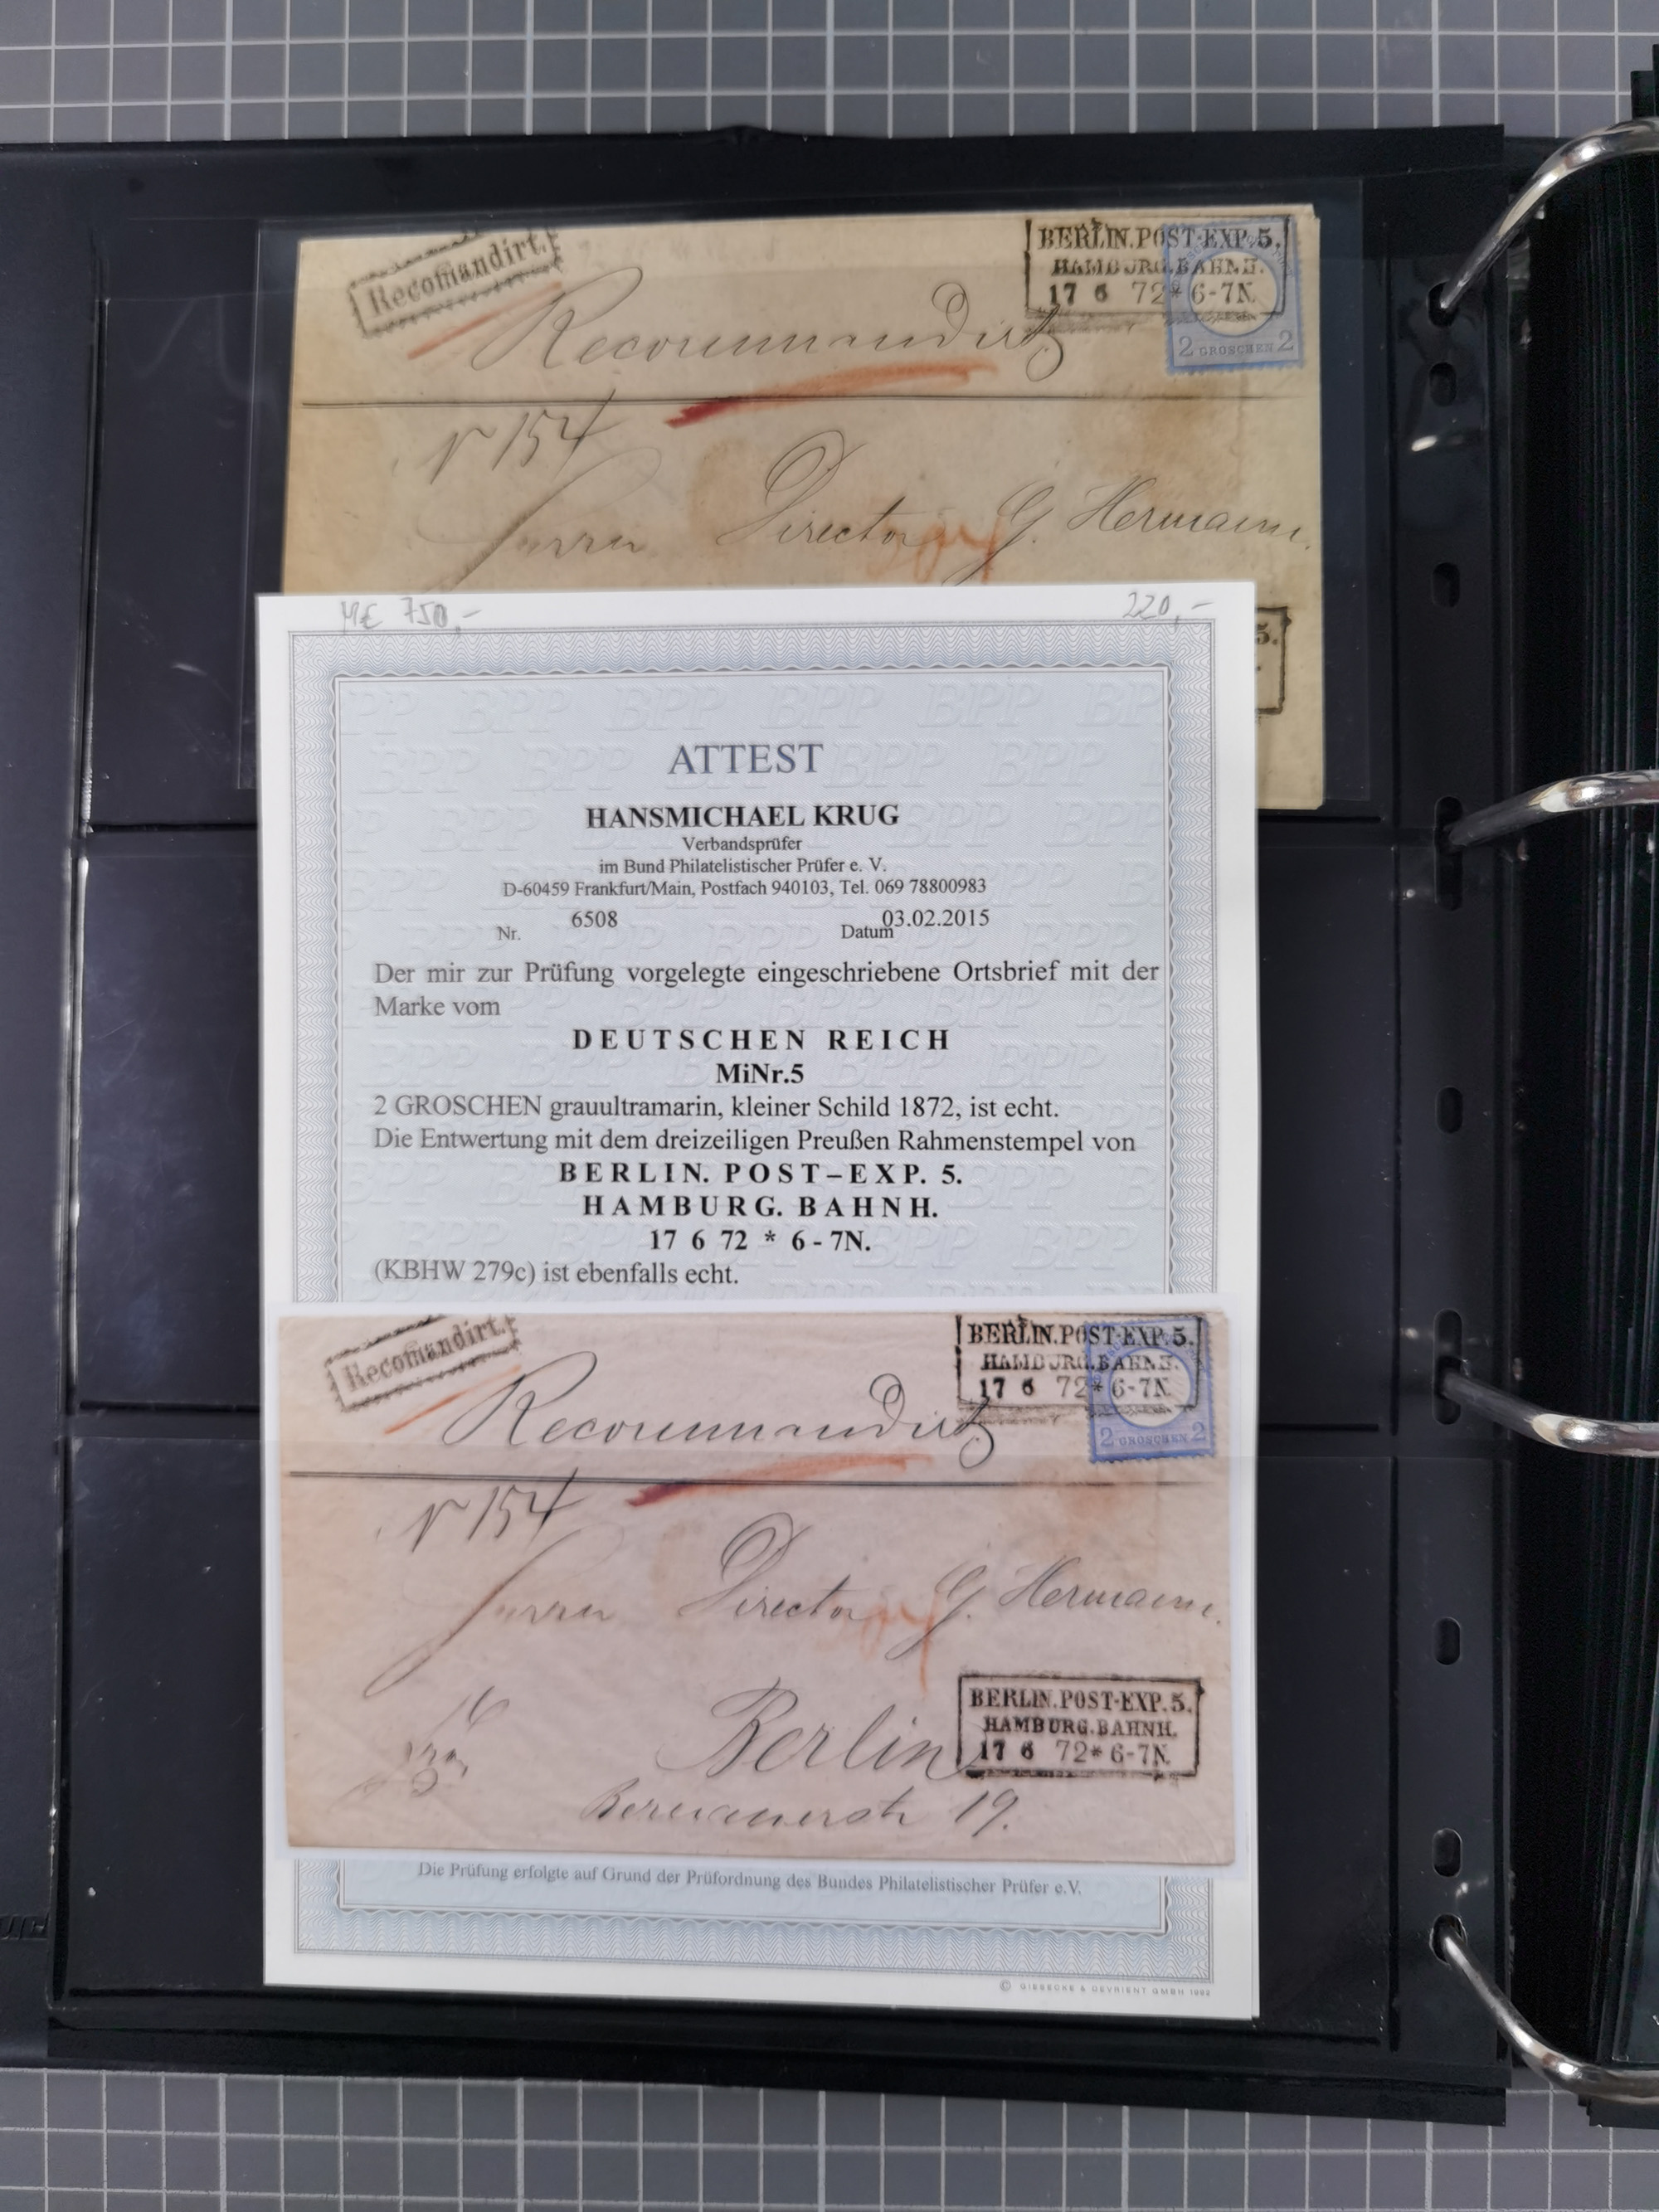 Recomandirt.
BERLIN.POST-EXP.5.
HAMBURG.BAHNH.
17 6 72 * 6-7N.
2 GROSCHEN 2
Recommandirt
N 154
Herrn Director G. Hermann.
5.
M€ 750,-
220,-
ATTEST
HANSMICHAEL KRUG
Verbandsprüfer
im Bund Philatelistischer Prüfer e. V.
D-60459 Frankfurt/Main, Postfach 940103, Tel. 069 78800983
Nr. 6508 Datum 03.02.2015
Der mir zur Prüfung vorgelegte eingeschriebene Ortsbrief mit der
Marke vom
DEUTSCHEN REICH
MiNr.5
2 GROSCHEN grauultramarin, kleiner Schild 1872, ist echt.
Die Entwertung mit dem dreizeiligen Preußen Rahmenstempel von
BERLIN. POST–EXP. 5.
HAMBURG. BAHNH.
17 6 72 * 6 - 7N.
(KBHW 279c) ist ebenfalls echt.
Recomandirt.
BERLIN.POST-EXP.5.
HAMBURG.BAHNH.
17 6 72 * 6-7N.
2 GROSCHEN 2
Recommandirt
N 154
Herrn Director G. Hermann.
BERLIN.POST-EXP.5.
HAMBURG.BAHNH.
17 6 72 * 6-7N.
Berlin
19.
Die Prüfung erfolgte auf Grund der Prüfordnung des Bundes Philatelistischer Prüfer e.V.
© GIESECKE & DEVRIENT GMBH 1992